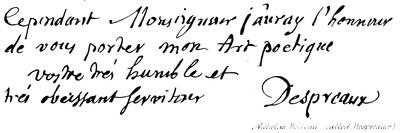 Cependant Monseigneur j'auray l'honneur
de vous porter mon Art poetique
vostre trés humble et
trés obeissant serviteur Despreaux
Nicholas Boileau (called Despreaux)